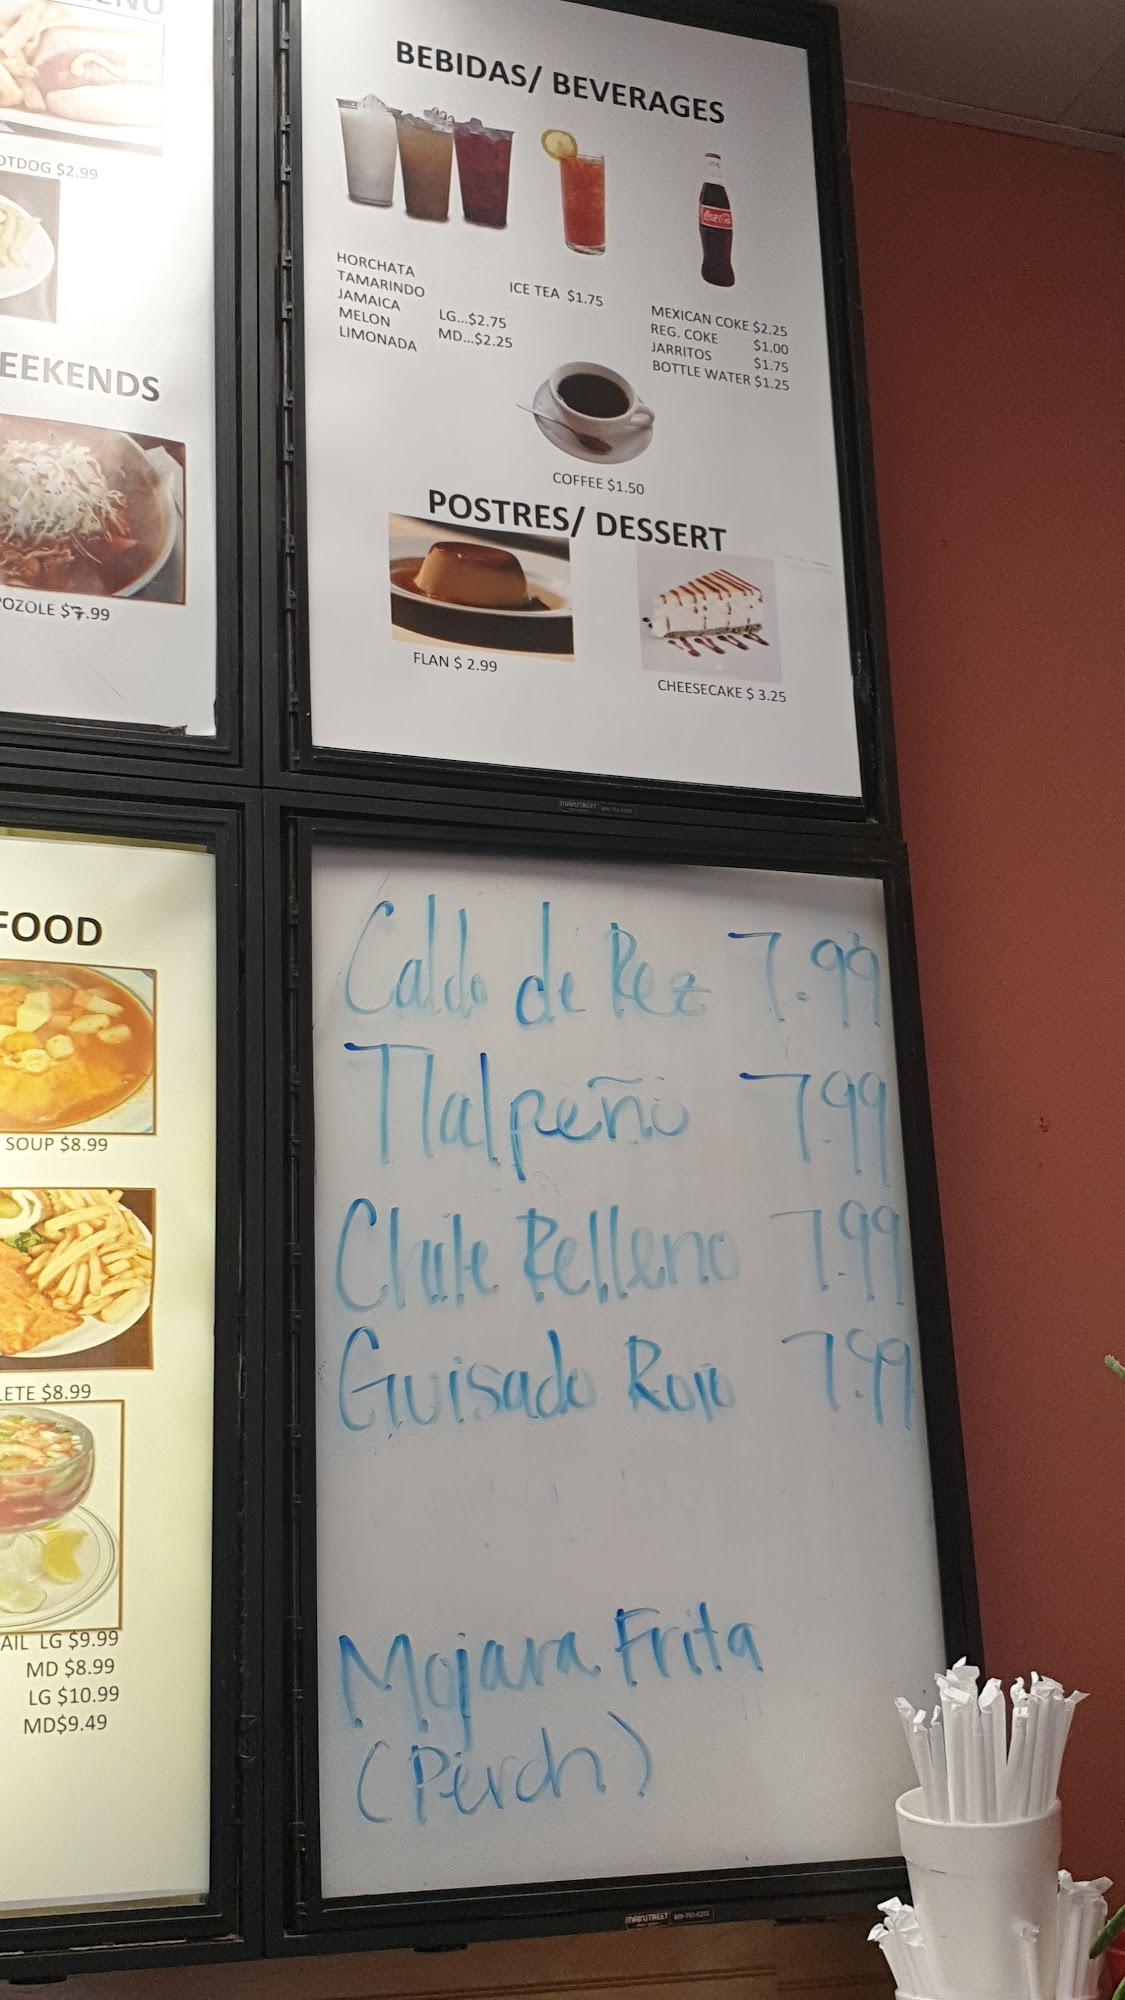 OTDOG $2.99
EEKENDS
OZOLE $7.99
BEBIDAS/ BEVERAGES
HORCHATA
TAMARINDO
JAMAICA
MELON
LIMONADA
LG...$2.75
MD...$2.25
ICE TEA $1.75
MEXICAN COKE $2.25
REG. COKE $1.00
JARRITOS $1.75
BOTTLE WATER $1.25
COFFEE $1.50
POSTRES/ DESSERT
FLAN $ 2.99
CHEESECAKE $ 3.25
MAINSTREET
FOOD
SOUP $8.99
LETE $8.99
AIL LG $9.99
MD $8.99
LG $10.99
MD$9.49
Caldo de Rez 7.99
Tlalpeño 7.99
Chile Relleno 7.99
Guisado Rojo 7.99
Mojara Frita
(Perch)
MAINSTREET